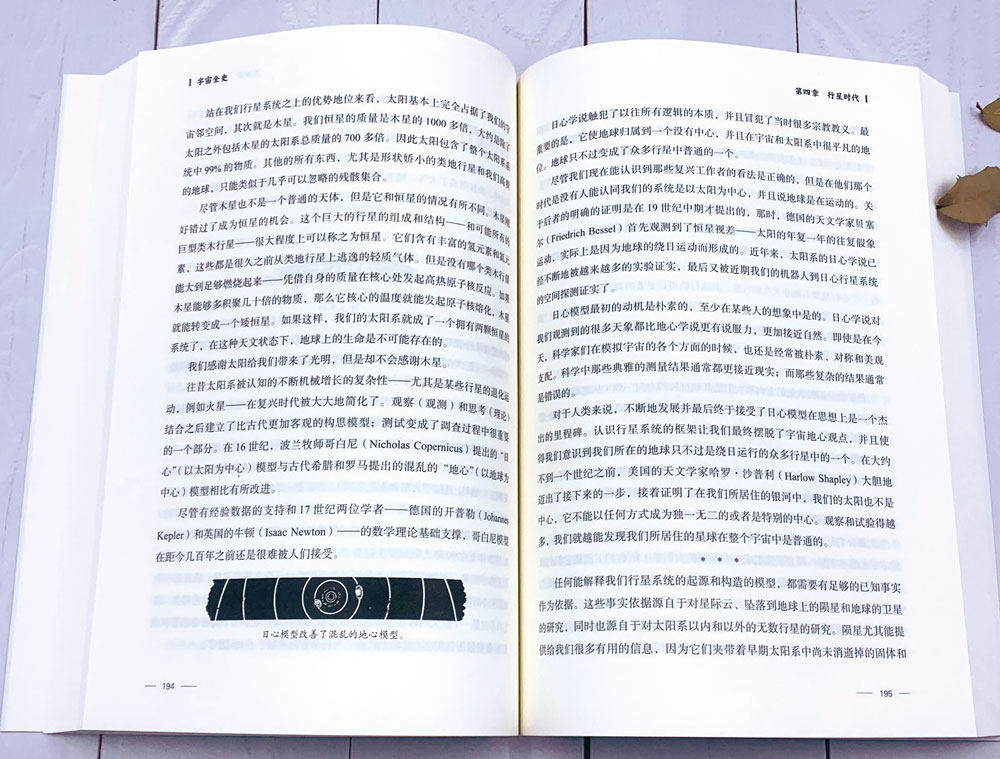 宇宙全史
站在我们行星系统之上的优势地位来看，太阳基本上完全占据了我们的宇
宙邻空间，其次就是木星。我们恒星的质量是木星的 1000 多倍，大约是除了
太阳之外包括木星的太阳系总质量的 700 多倍。因此太阳包含了整个太阳系系
统中 99% 的物质。其他的所有东西，尤其是形状娇小的类地行星和我们高贵
的地球，只能类似于几乎可以忽略的残骸集合。
尽管木星也不是一个普通的天体，但是它和恒星的情况有所不同。木星刚
好错过了成为恒星的机会。这个巨大的行星的组成和结构——和可能所有的
巨型类木行星——很大程度上可以称之为恒星。它们含有丰富的氢元素和氦元
素，这些都是很久之前从类地行星上逃逸的轻质气体。但是没有哪个类木行星
能大到足够燃烧起来——凭借自身的质量在核心处发起高热原子核反应。如果
木星能够多积聚几十倍的物质，那么它核心的温度就能发起原子核熔化，木星
就能转变成一个矮恒星。如果这样，我们的太阳系就成了一个拥有两颗恒星的
系统了，在这种天文状态下，地球上的生命是不可能存在的。
我们感谢太阳给我们带来了光明，但是却不会感谢木星。
往昔太阳系被认知的不断机械增长的复杂性——尤其是某些行星的退化运
动，例如火星——在复兴时代被大大地简化了。观察（观测）和思考（理论）
结合之后建立了比古代更加客观的构思模型；测试变成了调查过程中很重要
的一个部分。在 16 世纪，波兰牧师哥白尼（Nicholas Copernicus）提出的“日
心”（以太阳为中心）模型与古代希腊和罗马提出的混乱的“地心”（以地球为
中心）模型相比有所改进。
尽管有经验数据的支持和 17 世纪两位学者——德国的开普勒（Johannes
Kepler）和英国的牛顿（Isaac Newton）——的数学理论基础支撑，哥白尼模型
在距今几百年之前还是很难被人们接受。
日心模型改善了混乱的地心模型。
— 194 —
第四章 行星时代
日心学说触犯了以往所有逻辑的本质，并且冒犯了当时很多宗教教义。最
重要的是，它使地球归属到一个没有中心，并且在宇宙和太阳系中很平凡的地
位。地球只不过变成了众多行星中普通的一个。
尽管我们现在能认识到那些复兴工作者的看法是正确的，但是在他们那个
时代是没有人能认同我们的系统是以太阳为中心，并且说地球是在运动的。关
于后者的明确的证明是在 19 世纪中期才提出的，那时，德国的天文学家贝塞
尔（Friedrich Bessel）首先观测到了恒星视差——太阳的年复一年的往复假象
运动，实际上是因为地球的绕日运动而形成的。近年来，太阳系的日心学说已
经不断地被越来越多的实验证实，最后又被近期我们的机器人到日心行星系统
的空间探测证实了。
日心模型最初的动机是朴素的，至少在某些人的想象中是的。日心学说对
我们观测到的很多天象都比地心学说更有说服力，更加接近自然。即使是在今
天，科学家们在模拟宇宙的各个方面的时候，也还是经常被朴素、对称和美观
支配。科学中那些典雅的测量结果通常都更接近现实；而那些复杂的结果通常
是错误的。
对于人类来说，不断地发展并最终于接受了日心模型在思想上是一个杰
出的里程碑。认识行星系统的框架让我们最终摆脱了宇宙地心观点，并且使
得我们意识到我们所在的地球只不过是绕日运行的众多行星中的一个。在大约
不到一个世纪之前，美国的天文学家哈罗·沙普利（Harlow Shapley）大胆地
迈出了接下来的一步，接着证明了在我们所居住的银河中，我们的太阳也不是
中心，它不能以任何方式成为独一无二的或者是特别的中心。观察和试验得越
多，我们就越能发现我们所居住的星球在整个宇宙中是普通的。
* * *
任何能解释我们行星系统的起源和构造的模型，都需要有足够的已知事实
作为依据。这些事实依据源自于对星际云、坠落到地球上的陨星和地球的卫星
的研究，同时也源自于对太阳系以内和以外的无数行星的研究。陨星尤其能提
供给我们很多有用的信息，因为它们夹带着早期太阳系中尚未消逝掉的固体和
— 195 —